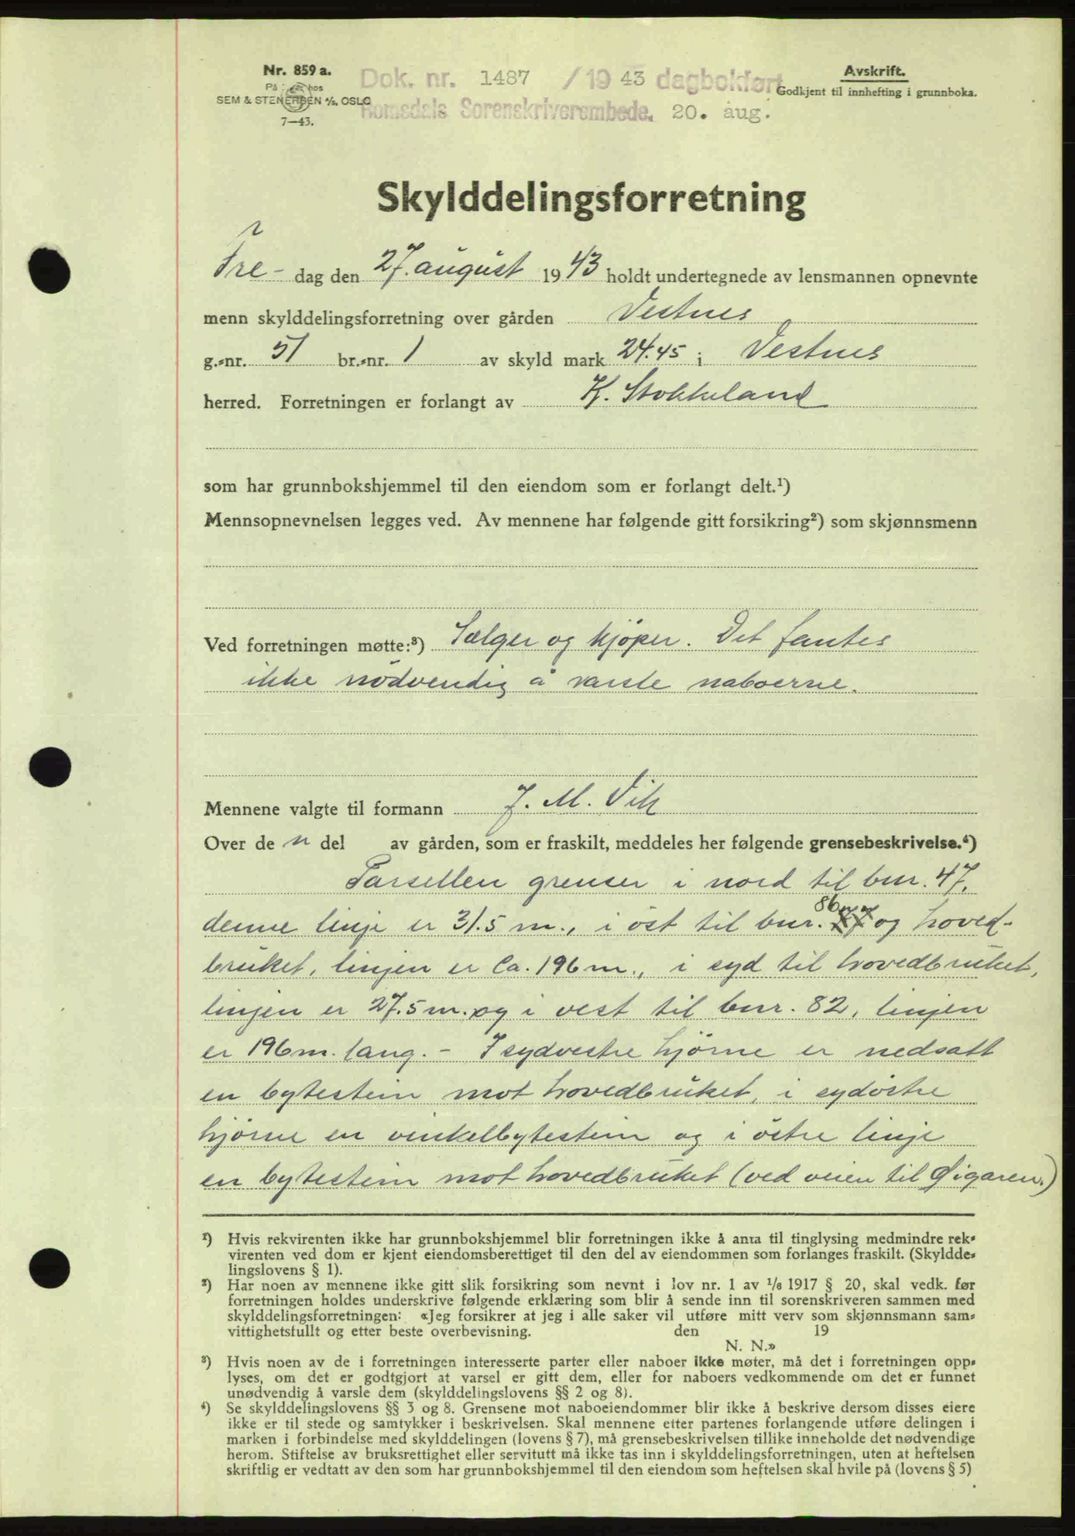 Nr. 859 a.
På lager hos
SEM & STENERSEN A/S, OSLO
7—43.
Dok. nr. 1487 / 19 43 dagbokført
Romsdals Sorenskriverembede. 20. aug.
Avskrift.
Godkjent til innhefting i grunnboka.
Skylddelingsforretning
Fre- dag den 27. august 19 43 holdt undertegnede av lensmannen opnevnte
menn skylddelingsforretning over gården Vestnes
g.-nr. 51 br.-nr. 1 av skyld mark 24.45 i Vestnes
herred. Forretningen er forlangt av K. Stokkeland
som har grunnbokshjemmel til den eiendom som er forlangt delt.¹)
Mennsopnevnelsen legges ved. Av mennene har følgende gitt forsikring²) som skjønnsmenn
Ved forretningen møtte:³) Sælger og kjöper. Det fantes
ikke nödvendig å varsle naboerne.
Mennene valgte til formann J. M. Vik
Over de n del av gården, som er fraskilt, meddeles her følgende grensebeskrivelse.⁴)
Parsellen grenser i nord til bnr. 47,
denne linje er 31.5 m., i öst til bnr. 86 og hoved-
bruket, linjen er ca. 196 m., i syd til hovedbruket,
linjen er 27.5 m. og i vest til bnr. 82, linjen
er 196 m. lang. - I sydvestre hjörne er nedsatt
en bytestein mot hovedbruket, i sydöstre
hjörne en vinkelbytestein og i östre linje
en bytestein mot hovedbruket (ved veien til Gigaren.)
¹) Hvis rekvirenten ikke har grunnbokshjemmel blir forretningen ikke å anta til tinglysing medmindre rek-
virenten ved dom er kjent eiendomsberettiget til den del av eiendommen som forlanges fraskilt. (Skyldde-
lingslovens § 1).
²) Har noen av mennene ikke gitt slik forsikring som nevnt i lov nr. 1 av 1/6 1917 § 20, skal vedk. før
forretningen holdes underskrive følgende erklæring som blir å sende inn til sorenskriveren sammen med
skylddelingsforretningen: «Jeg forsikrer at jeg i alle saker vil utføre mitt verv som skjønnsmann sam-
vittighetsfullt og etter beste overbevisning. den 19
N. N.»
³) Hvis noen av de i forretningen interesserte parter eller naboer ikke møter, må det i forretningen opp-
lyses, om det er godtgjort at varsel er gitt dem, eller for naboers vedkommende om det er funnet
unødvendig å varsle dem (skylddelingslovens §§ 2 og 8).
⁴) Se skylddelingslovens §§ 3 og 8. Grensene mot naboeiendommer blir ikke å beskrive dersom disses eiere
ikke er til stede og samtykker i beskrivelsen. Skal mennene etter partenes forlangende utføre delingen i
marken i forbindelse med skylddelingen (lovens § 7), må grensebeskrivelsen tillike inneholde det nødvendige
herom. Stiftelse av bruksrettighet eller servitutt må ikke tas inn i skylddelingsforretningen, uten at heftelsen
skriftlig er vedtatt av den som har grunnbokshjemmel til den eiendom som heftelsen skal hvile på (lovens § 5)